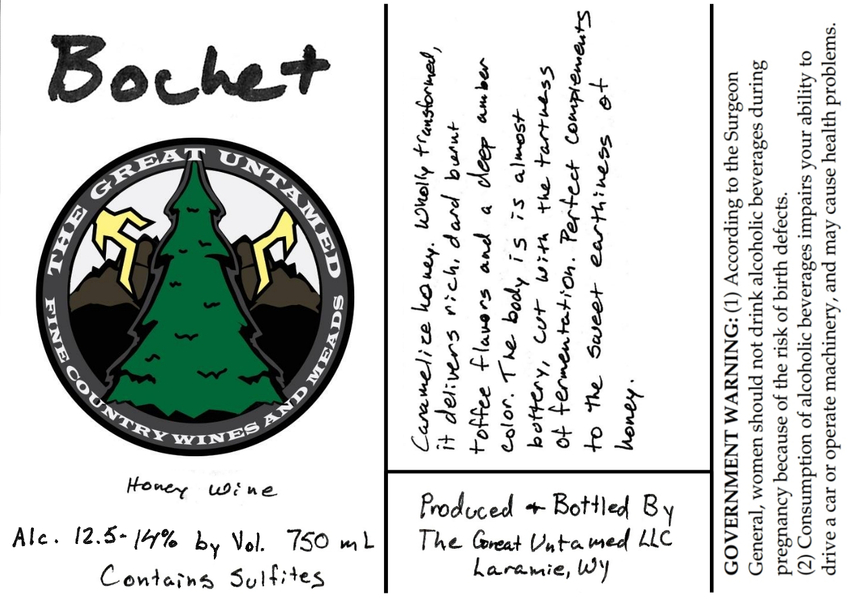 Bochet
THE GREAT UNTAMED
FINE COUNTRY WINES AND MEADS
Honey Wine
Alc. 12.5-14% by Vol. 750 mL
Contains Sulfites
Caramelize honey. Wholly transformed,
it delivers rich, dard burnt
toffee flavors and a deep amber
color. The body is is almost
buttery, cut with the tartness
of fermentation. Perfect complements
to the sweet earthiness of
honey.
Produced + Bottled By
The Great Untamed LLC
Laramie, WY
GOVERNMENT WARNING: (1) According to the Surgeon
General, women should not drink alcoholic beverages during
pregnancy because of the risk of birth defects.
(2) Consumption of alcoholic beverages impairs your ability to
drive a car or operate machinery, and may cause health problems.